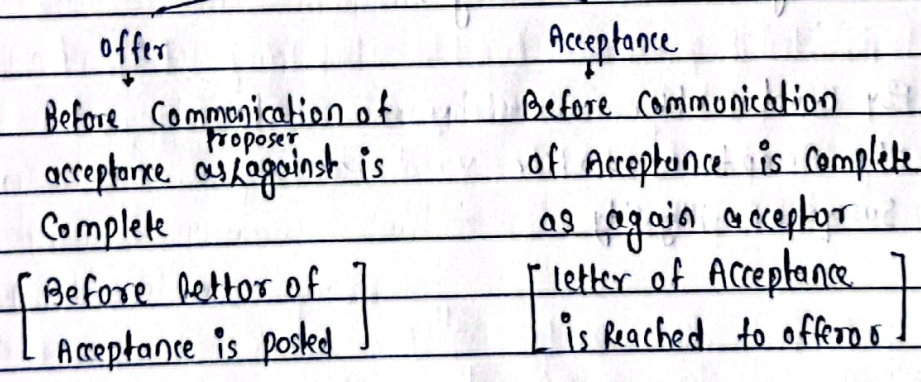 Offer
Before Communication of
proposer
acceptance as against is
Complete
[ Before letter of
Acceptance is posted ]
Acceptance
Before Communication
of Acceptance is Complete
as again acceptor
[ letter of Acceptance
is Reached to offeror ]